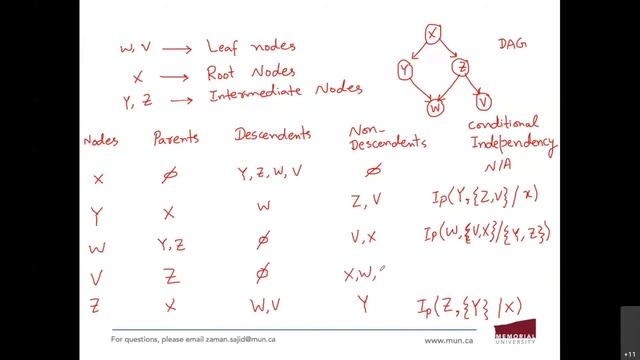 W, V → Leaf nodes
X → Root Nodes
Y, Z → Intermediate Nodes
X
Y
Z
W
V
DAG
Nodes Parents Descendents Non-Descendents Conditional Independency
X ∅ Y, Z, W, V ∅ N/A
Y X W Z, V Ip(Y, {Z,V} / X)
W Y, Z ∅ V, X Ip(W, {V,X} / {Y, Z})
V Z ∅ X, W,
Z X W, V Y Ip(Z, {Y} / X)
For questions, please email zaman.sajid@mun.ca
www.mun.ca
MEMORIAL
UNIVERSITY
+11